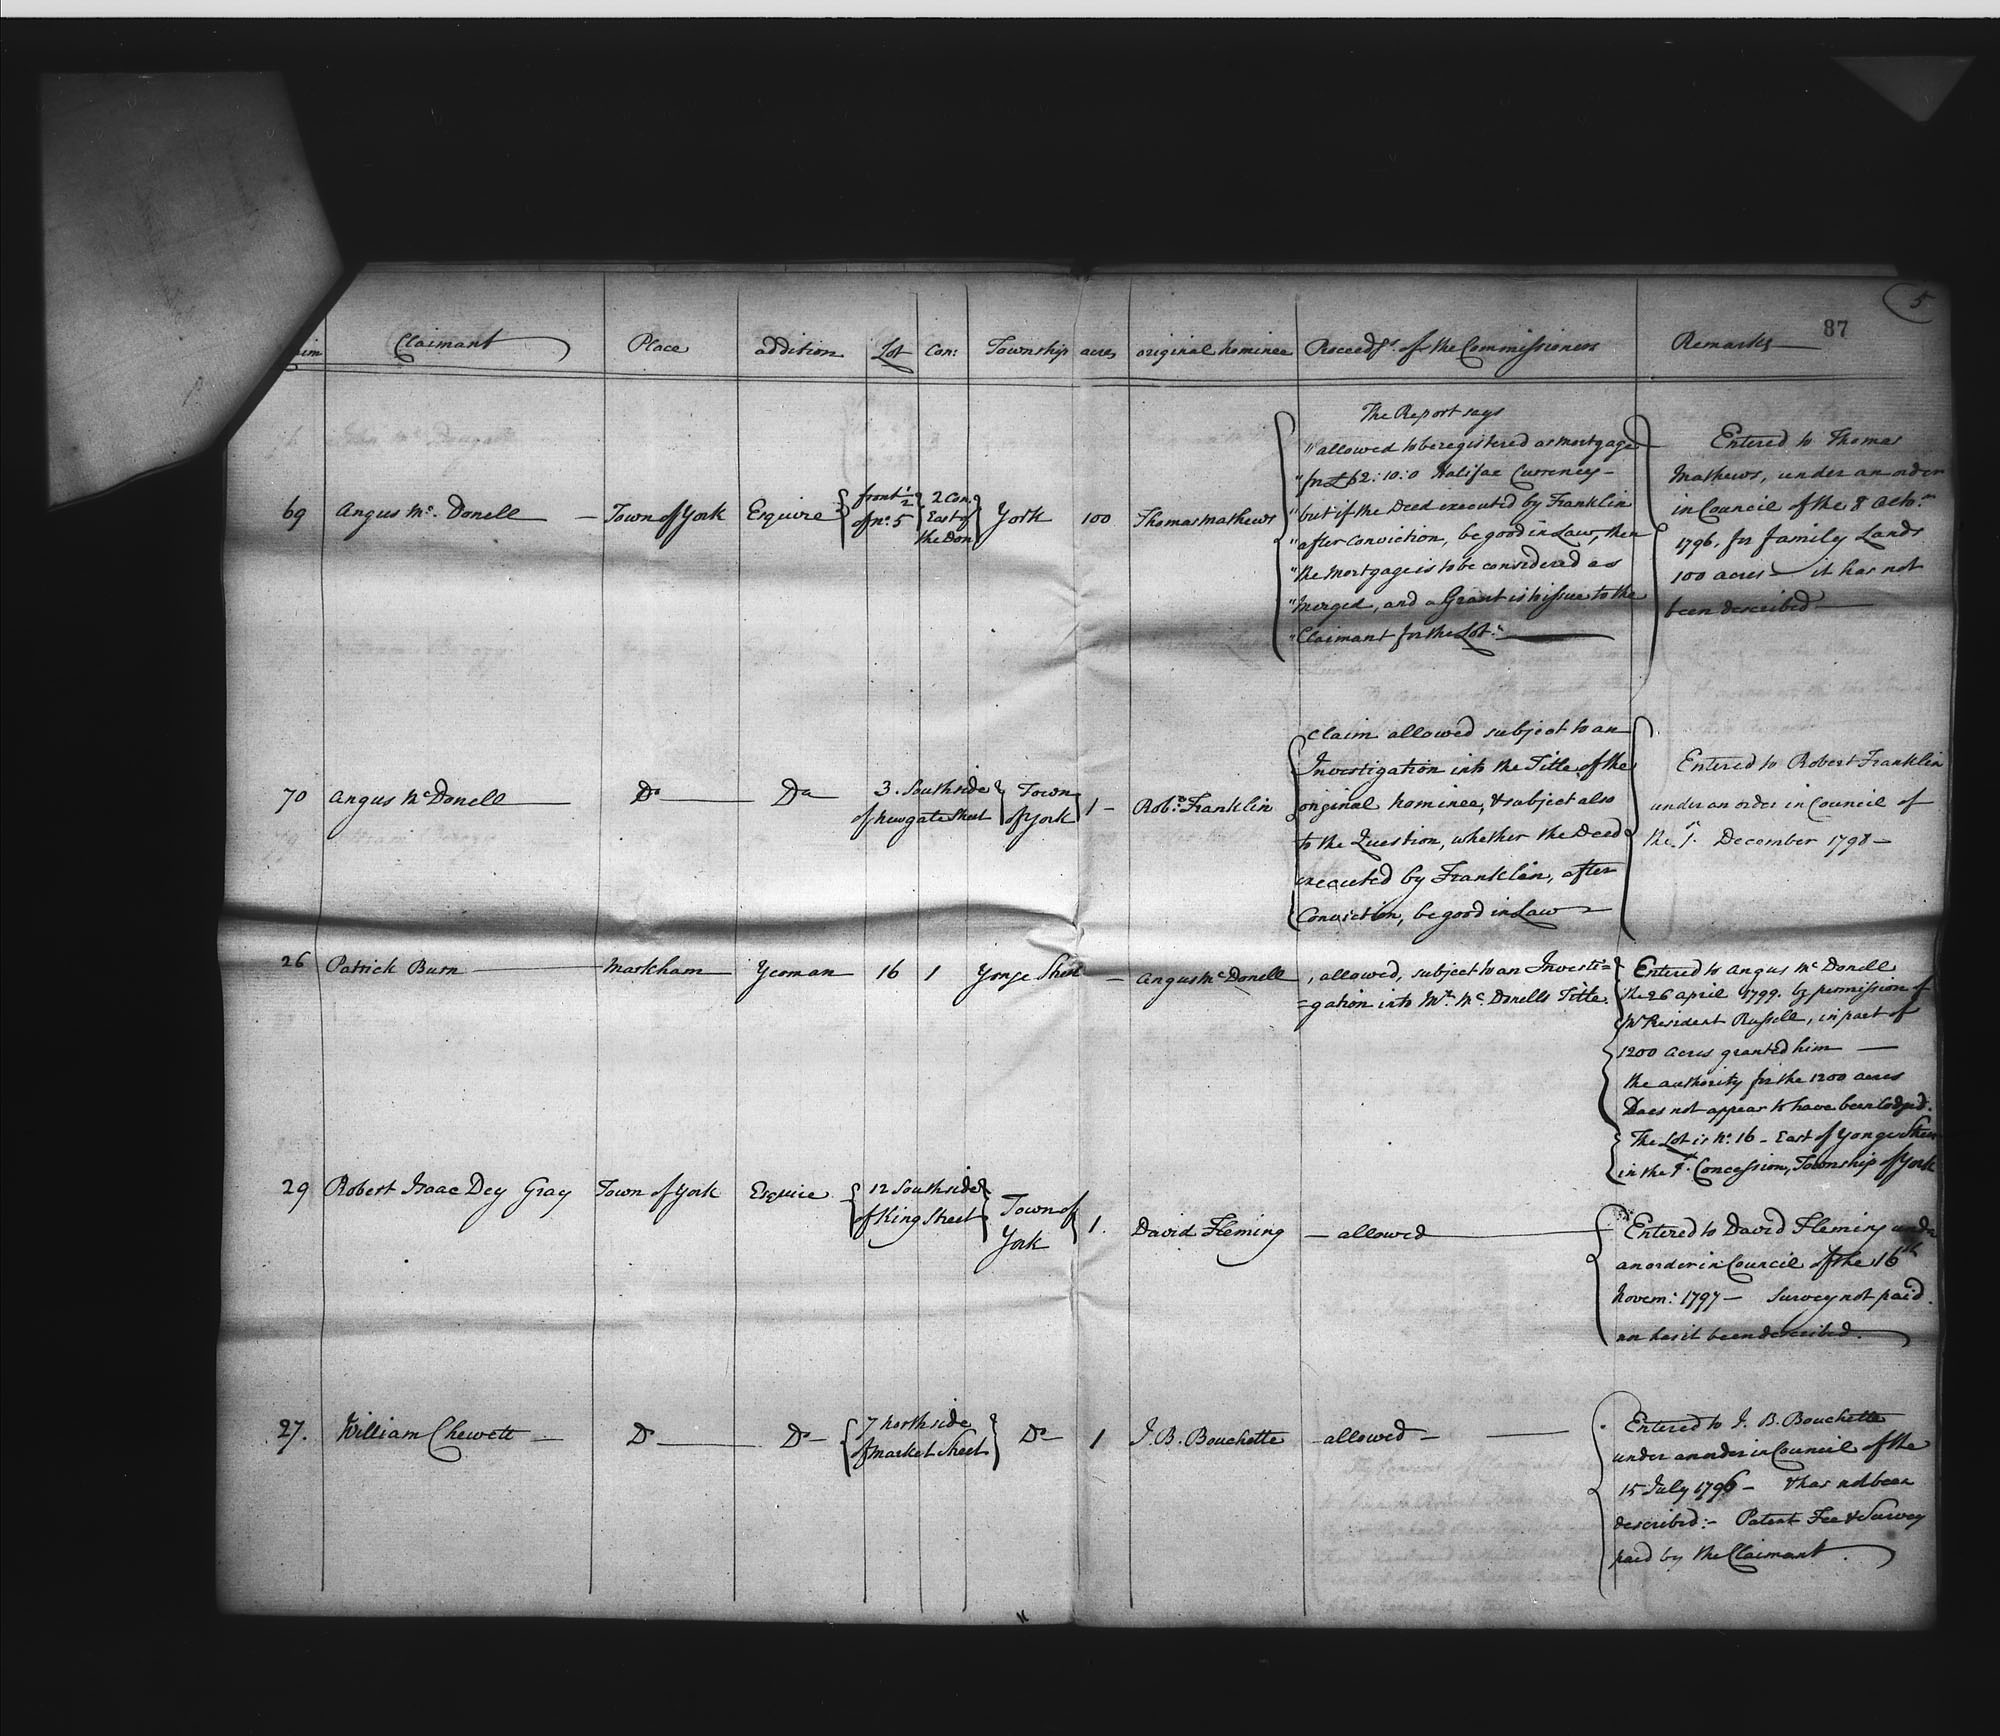 5
87
Claimant Place addition Lot Con: Township acres original nominee Proceedgs. of the Commissioners Remarks
69 Angus Mc. Donell — Town of York Esquire front 1/2 of No. 5 2 Con. East of the Don York 100 Thomas Mathews
The Report says
"allowed to be registered as mortgage
"for £62:10:0 Halifax Currency —
"but if the Deed executed by Franklin
"after Conviction, be good in Law, then
"the Mortgage is to be considered as
"Merged, and a Grant is to issue to the
"Claimant for the Lot."
Entered to Thomas
Mathews, under an order
in Council of the 8 Octor.
1796. for family Lands
100 acres — it has not
been described —
70 Angus McDonell Do — Do 3. South side of Newgate Street Town of York 1 — Robt. Franklin
Claim allowed subject to an
Investigation into the Title of the
original nominee, & subject also
to the Question, whether the Deed
executed by Franklin, after
Conviction, be good in Law
Entered to Robert Franklin
under an order in Council of
the 1st. December 1798 —
26 Patrick Burn — Markham Yeoman 16 1 Yonge Street — Angus McDonell
, allowed, subject to an Investi=
=gation into Mr. Mc. Donells Title.
Entered to Angus Mc Donell
the 26 April 1799. by permission of
Mr President Russell, in part of
1200 acres granted him —
the authority for the 1200 acres
Does not appear to have been lodged.
The Lot is No. 16 — East of Yonge Street
in the 1st. Concession, Township of York
29 Robert Isaac Dey Gray Town of York Esquire 12 South side of King Street Town of York 1. David Fleming — allowed
Entered to David Fleming under
an order in Council of the 16th
Novem: 1797 — Survey not paid.
nor has it been described.
27. William Chewett — Do — Do — 7 North side of Market Street Do — 1 J. B. Bouchette allowed —
Entered to J. B. Bouchette
under an order in Council of the
15 July 1796 — & has not been
described: — Patent Fee & Survey
paid by the Claimant.